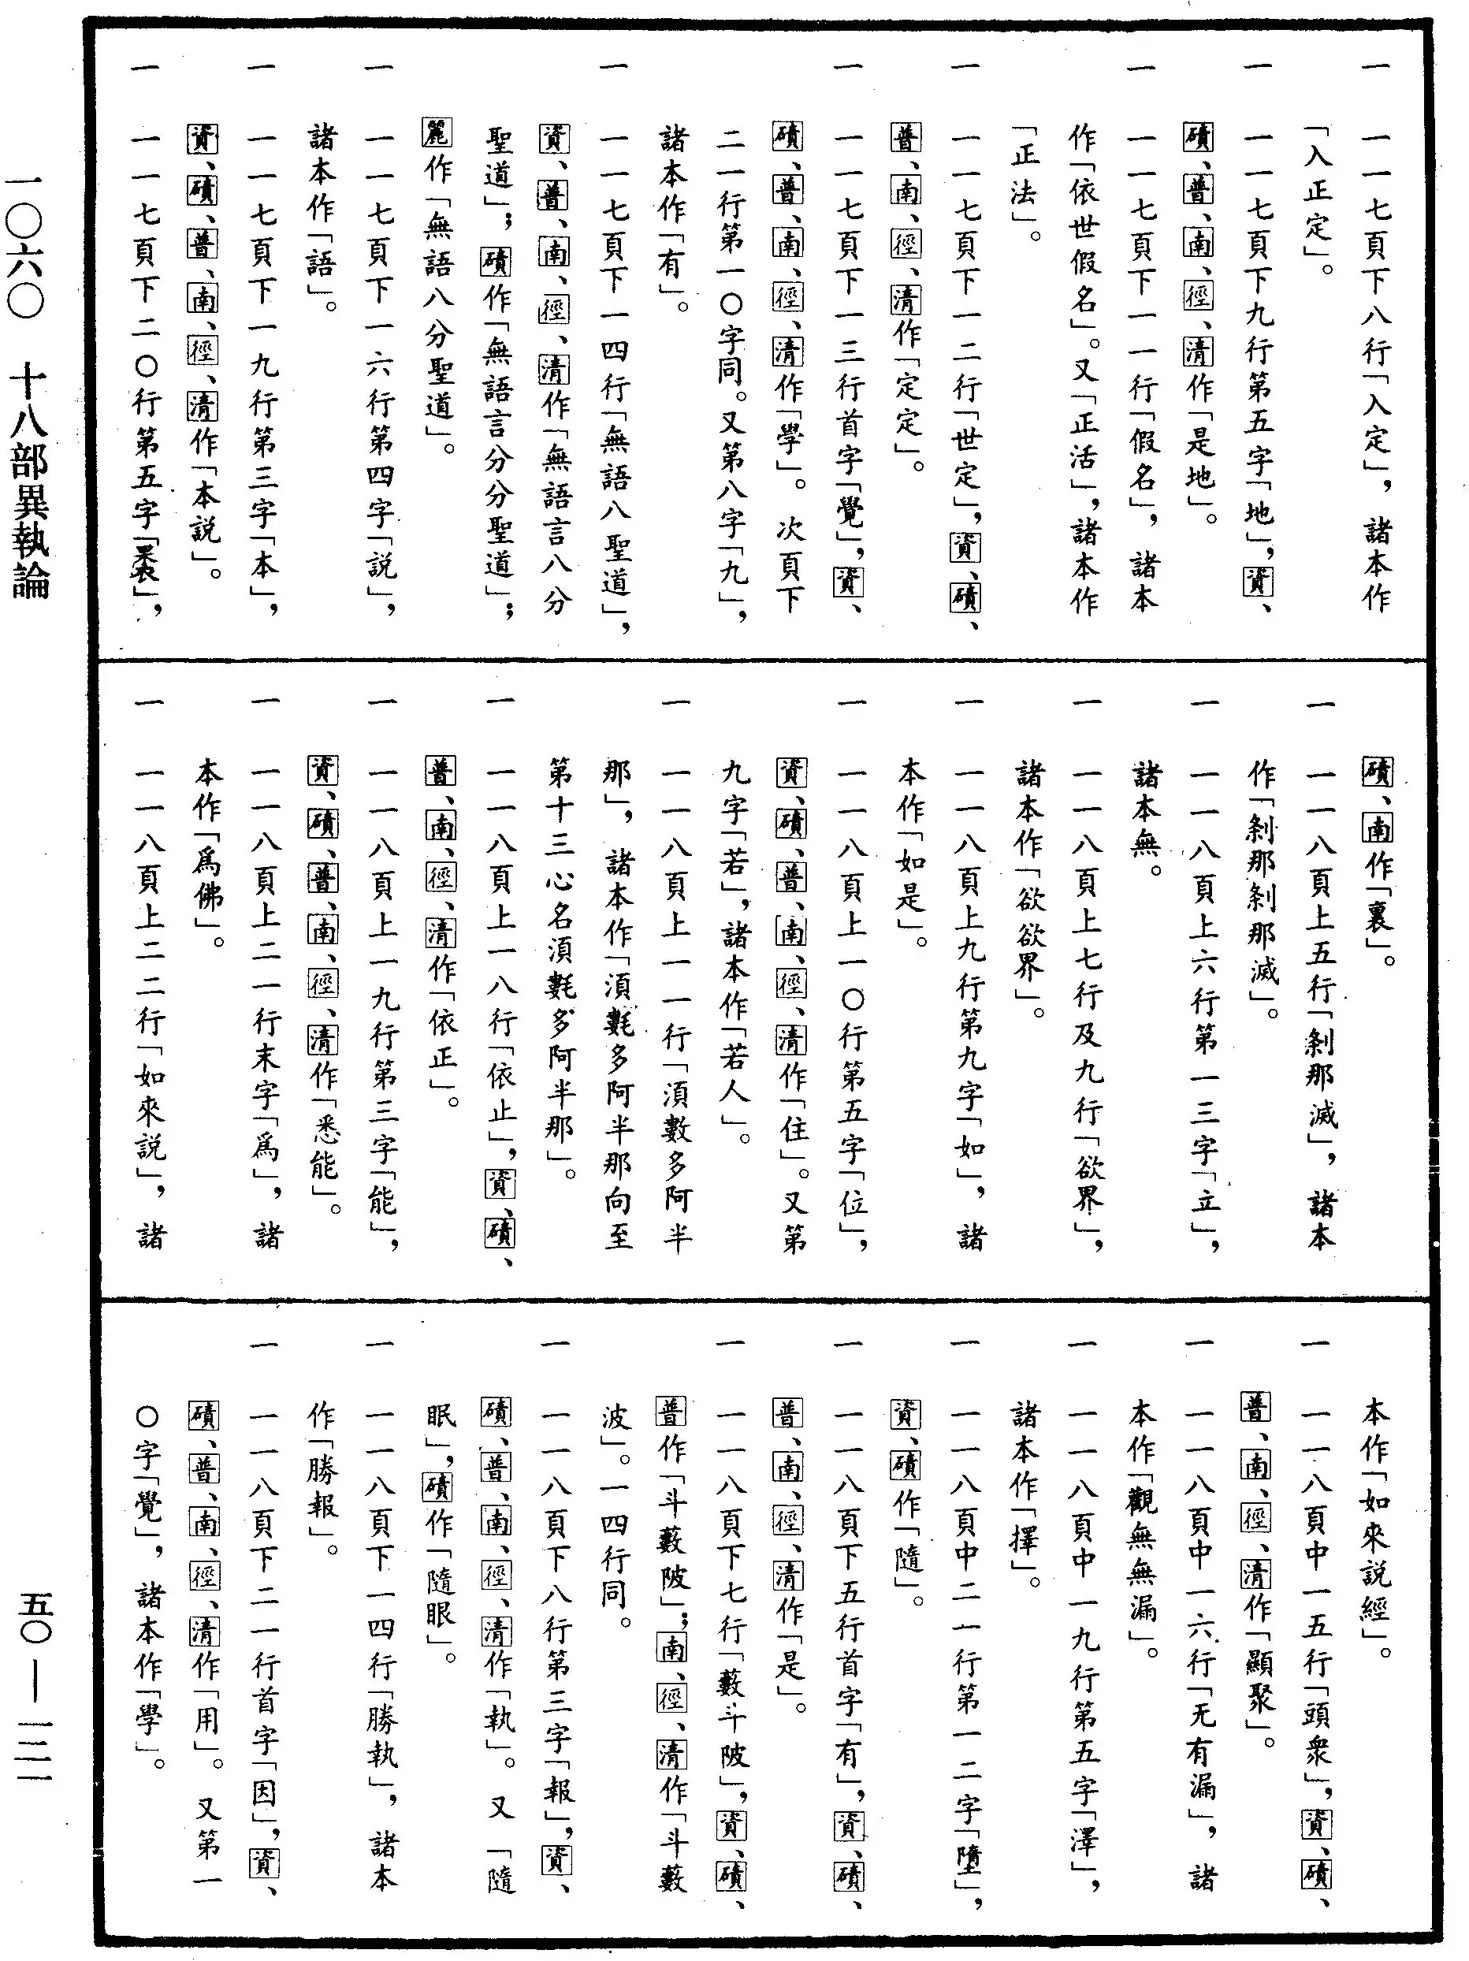 一　一一七頁下八行「入定」，諸本作
「入正定」。
一　一一七頁下九行第五字「地」，資、
磧、普、南、徑、清作「是地」。
一　一一七頁下一一行「假名」，諸本
作「依世假名」。又「正活」，諸本作
「正法」。
一　一一七頁下一二行「世定」，資、磧、
普、南、徑、清作「定定」。
一　一一七頁下一三行首字「覺」，資、
磧、普、南、徑、清作「學」。次頁下
二一行第一〇字同。又第八字「九」，
諸本作「有」。
一　一一七頁下一四行「無語八聖道」，
資、普、南、徑、清作「無語言八分
聖道」；磧作「無語言分分聖道」；
麗作「無語八分聖道」。
一　一一七頁下一六行第四字「説」，
諸本作「語」。
一　一一七頁下一九行第三字「本」，
資、磧、普、南、徑、清作「本説」。
一　一一七頁下二〇行第五字「褁」，
磧、南作「裏」。
一　一一八頁上五行「刹那滅」，諸本
作「刹那刹那滅」。
一　一一八頁上六行第一三字「立」，
諸本無。
一　一一八頁上七行及九行「欲界」，
諸本作「欲欲界」。
一　一一八頁上九行第九字「如」，諸
本作「如是」。
一　一一八頁上一〇行第五字「位」，
資、磧、普、南、徑、清作「住」。又第
九字「若」，諸本作「若人」。
一　一一八頁上一一行「須數多阿半
那」，諸本作「須氀多阿半那向至
第十三心名須氀多阿半那」。
一　一一八頁上一八行「依止」，資、磧、
普、南、徑、清作「依正」。
一　一一八頁上一九行第三字「能」，
資、磧、普、南、徑、清作「悉能」。
一　一一八頁上二一行末字「爲」，諸
本作「爲佛」。
一　一一八頁上二二行「如來説」，諸
本作「如來説經」。
一　一一八頁中一五行「頭衆」，資、磧、
普、南、徑、清作「顯聚」。
一　一一八頁中一六行「无有漏」，諸
本作「觀無無漏」。
一　一一八頁中一九行第五字「澤」，
諸本作「擇」。
一　一一八頁中二一行第一二字「墮」，
資、磧作「隨」。
一　一一八頁下五行首字「有」，資、磧、
普、南、徑、清作「是」。
一　一一八頁下七行「藪斗陂」，資、磧、
普作「斗藪陂」；南、徑、清作「斗藪
波」。一四行同。
一　一一八頁下八行第三字「報」，資、
磧、普、南、徑、清作「執」。又「隨
眠」，磧作「隨眼」。
一　一一八頁下一四行「勝執」，諸本
作「勝報」。
一　一一八頁下二一行首字「因」，資、
磧、普、南、徑、清作「用」。又第一
〇字「覺」，諸本作「學」。
一〇六〇　十八部異執論
五〇——一二一